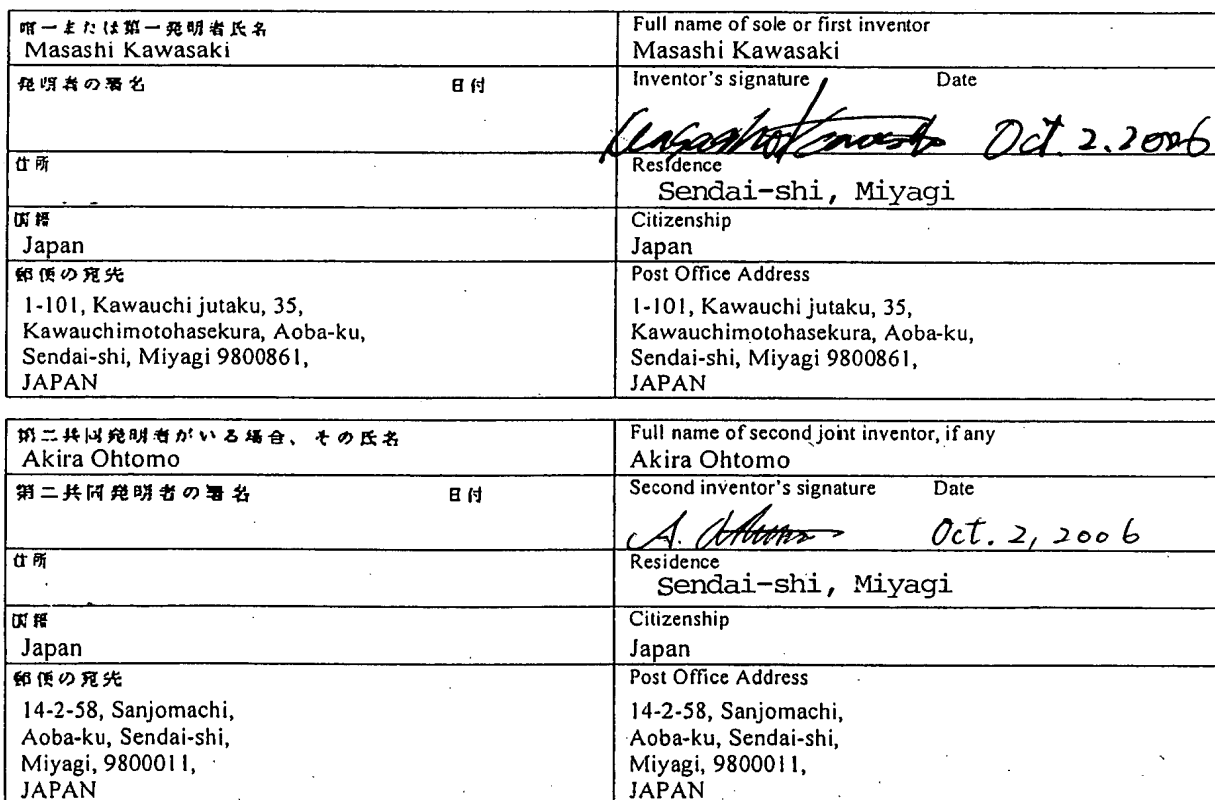 唯一または第一発明者氏名
Masashi Kawasaki
Full name of sole or first inventor
Masashi Kawasaki
発明者の署名 日付
Inventor's signature Date
Masashi Kawasaki Oct. 2. 2006
住所
Residence
Sendai-shi, Miyagi
国籍
Japan
Citizenship
Japan
郵便の宛先
1-101, Kawauchi jutaku, 35,
Kawauchimotohasekura, Aoba-ku,
Sendai-shi, Miyagi 9800861,
JAPAN
Post Office Address
1-101, Kawauchi jutaku, 35,
Kawauchimotohasekura, Aoba-ku,
Sendai-shi, Miyagi 9800861,
JAPAN
第二共同発明者がいる場合、その氏名
Akira Ohtomo
Full name of second joint inventor, if any
Akira Ohtomo
第二共同発明者の署名 日付
Second inventor's signature Date
A. Ohtomo Oct. 2, 2006
住所
Residence
Sendai-shi, Miyagi
国籍
Japan
Citizenship
Japan
郵便の宛先
14-2-58, Sanjomachi,
Aoba-ku, Sendai-shi,
Miyagi, 9800011,
JAPAN
Post Office Address
14-2-58, Sanjomachi,
Aoba-ku, Sendai-shi,
Miyagi, 9800011,
JAPAN